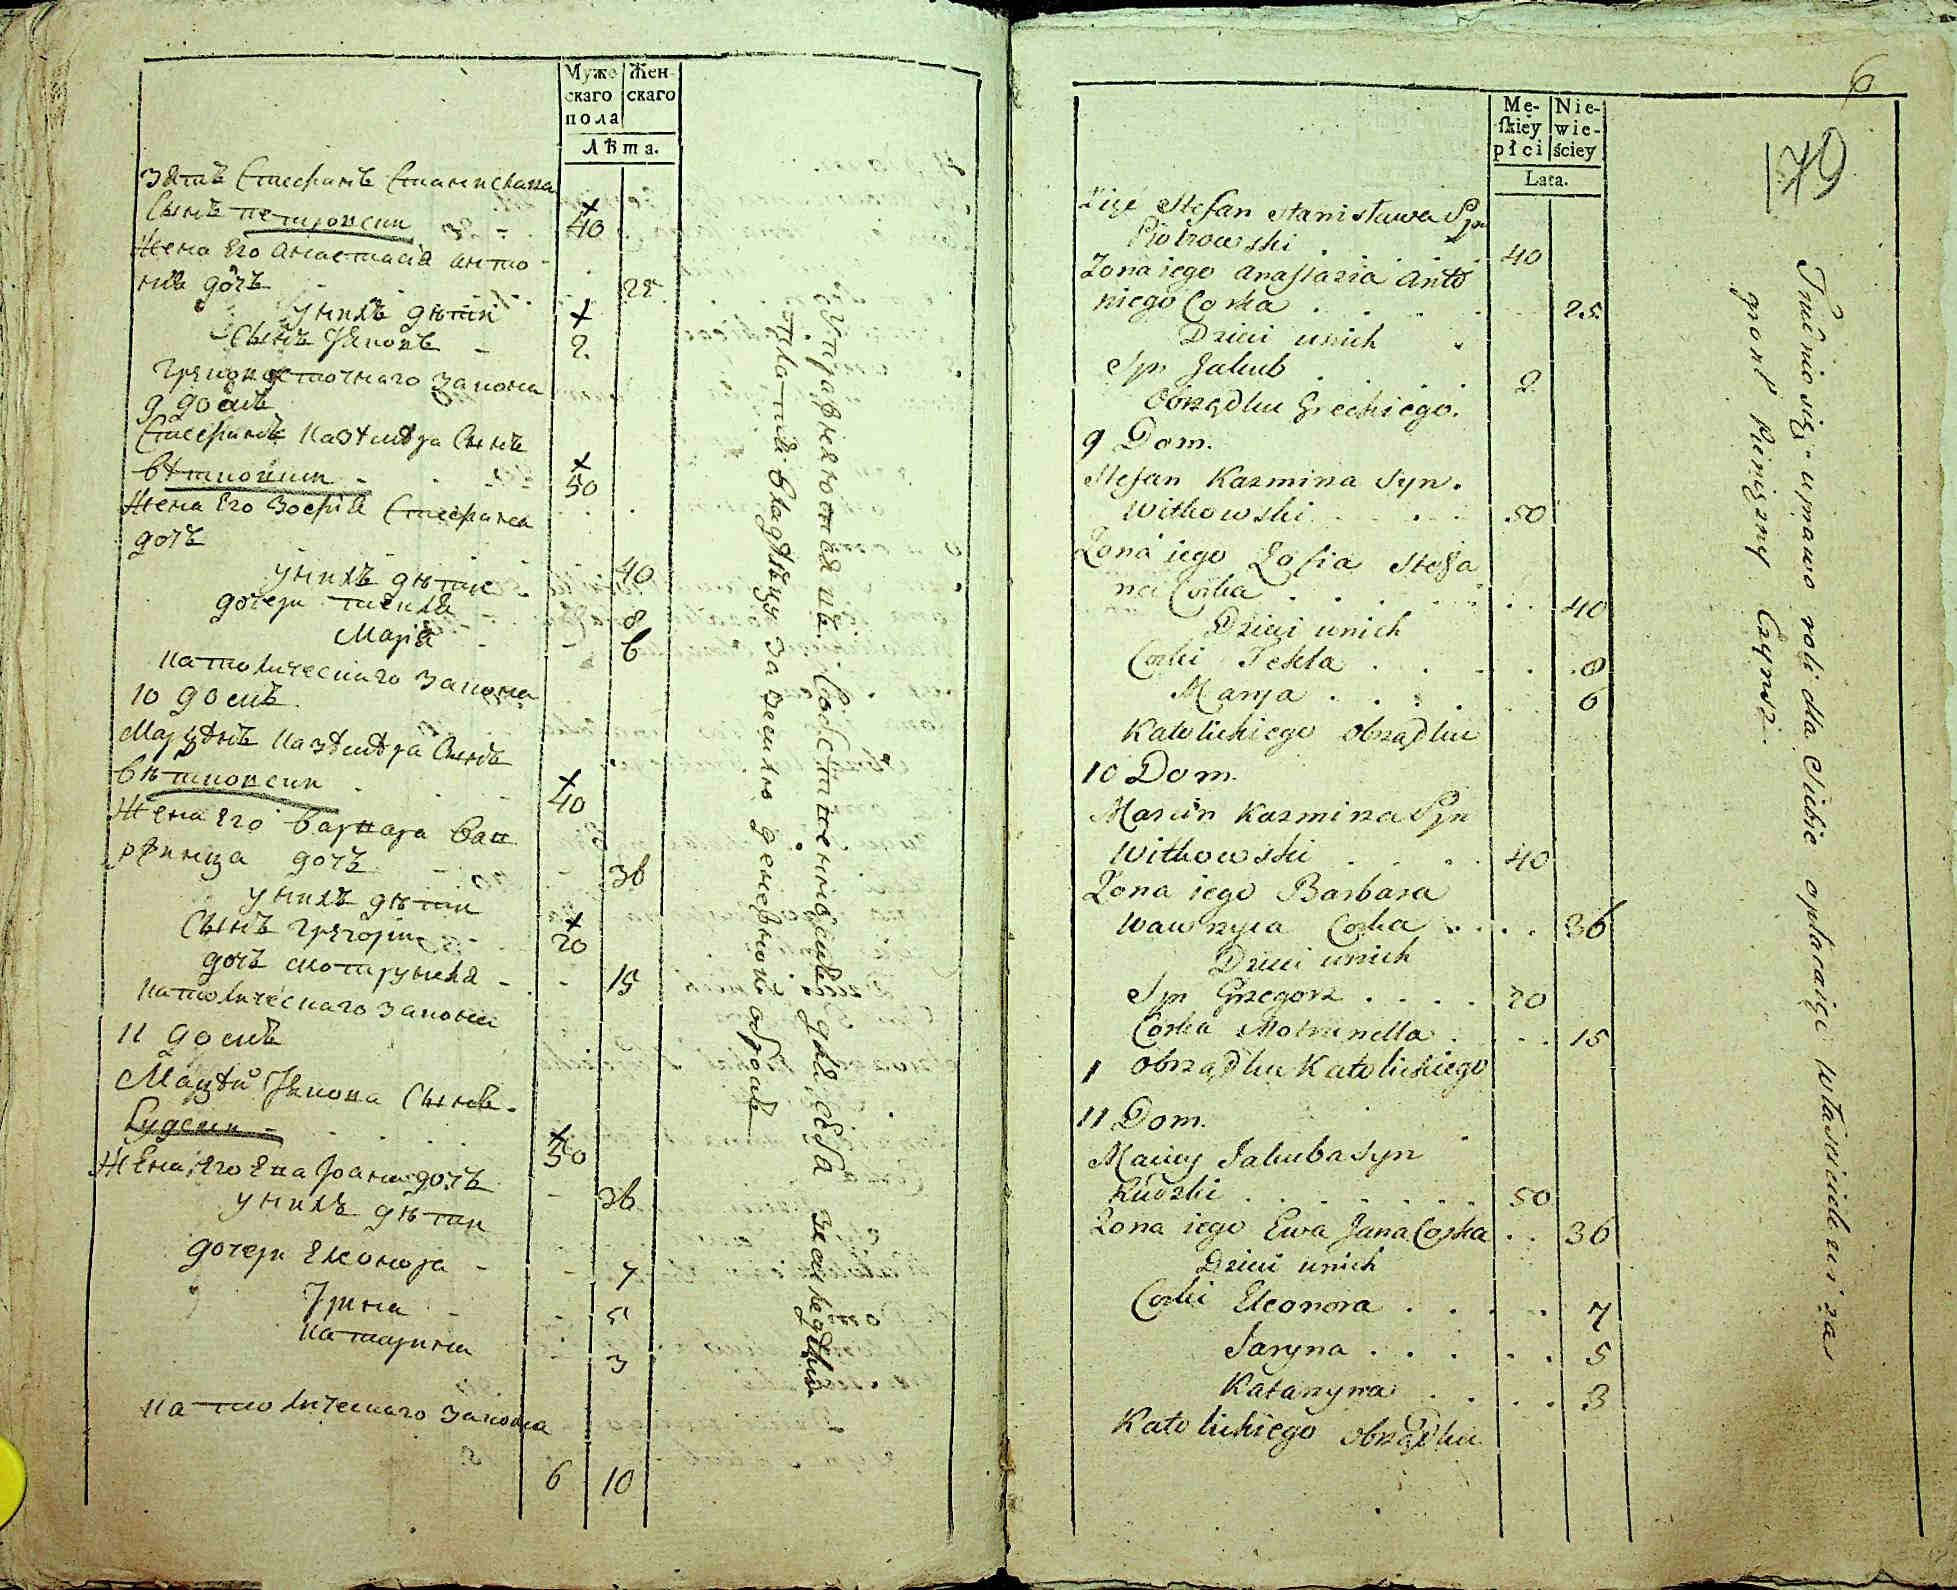 Муже- Жен-
скаго скаго
пола
Лѣта.
Зять Стефанъ Станислава
Сынъ Петровски 40
Жена Его Анастасія Анто-
нія дочъ 25
у нихъ дѣти
Сынъ Якопъ 2
Грековосточнаго закона
9 домъ
Стефанъ Казимира Сынъ
Витковски 50
Жена Его Зофія Стефана
дочъ 40
у нихъ дѣти
дочери Текля 8
Марія 6
Католическаго закона
10 домъ
Марцинъ Казимира Сынъ
Витковски 40
Жена Его Барбара Вав
рынца дочъ 36
у нихъ дѣти
Сынъ Грегори 20
дочъ Мотрунеля 15
Католическаго закона
11 домъ
Мацѣй Якопа Сынъ
Рудски 50
Жена Его Ева Яана дочъ 36
у нихъ дѣти
дочери Елеонора 7
Ирина 5
Катарина 3
Католическаго закона
6 10
для себя
владѣлцу за землю
6
Mę- Nie-
skiey wie-
płci ściey
Lata.
Zięć Stefan Stanisława Syn
Piotrowski 40
Zona iego Anastazia Anto
niego Corka 25
Dzieci unich
Syn Jakub 2
Obrządku Greckiego.
9 Dom.
Stefan Kazmirza Syn.
Witkowski 50
Zona iego Zofia Stefa
na Corka 40
Dzieci unich
Corki Tekla 8
Marya 6
Katolickiego obrządku
10 Dom.
Marcin Kazmirza Syn
Witkowski 40
Zona iego Barbara
Wawrzyca Corka 36
Dzieci unich
Syn Grzegorz 20
Corka Motrunella 15
obrządku Katolickiego
11 Dom.
Maciey Jakuba Syn
Rudzki 50
Zona iego Ewa Jana Corka 36
Dzieci unich
Corki Eleonora 7
Jaryna 5
Katarzyna 3
Katolickiego obrządku
Trudnią się uprawą roli dla Siebie opłacaiąc właścicielowi za
grunt Pieniężny Czynsz.